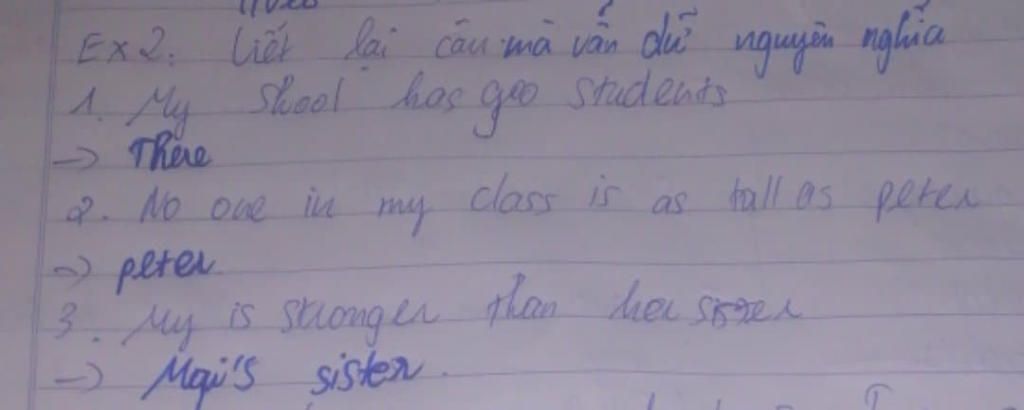 Ex 2: Viết lại câu mà vẫn dữ nguyên nghĩa
1. My Skool has 900 students
-> There
2. No one in my class is as tall as peter
-> peter
3. My is stronger than her sister
-> Mai's sister.